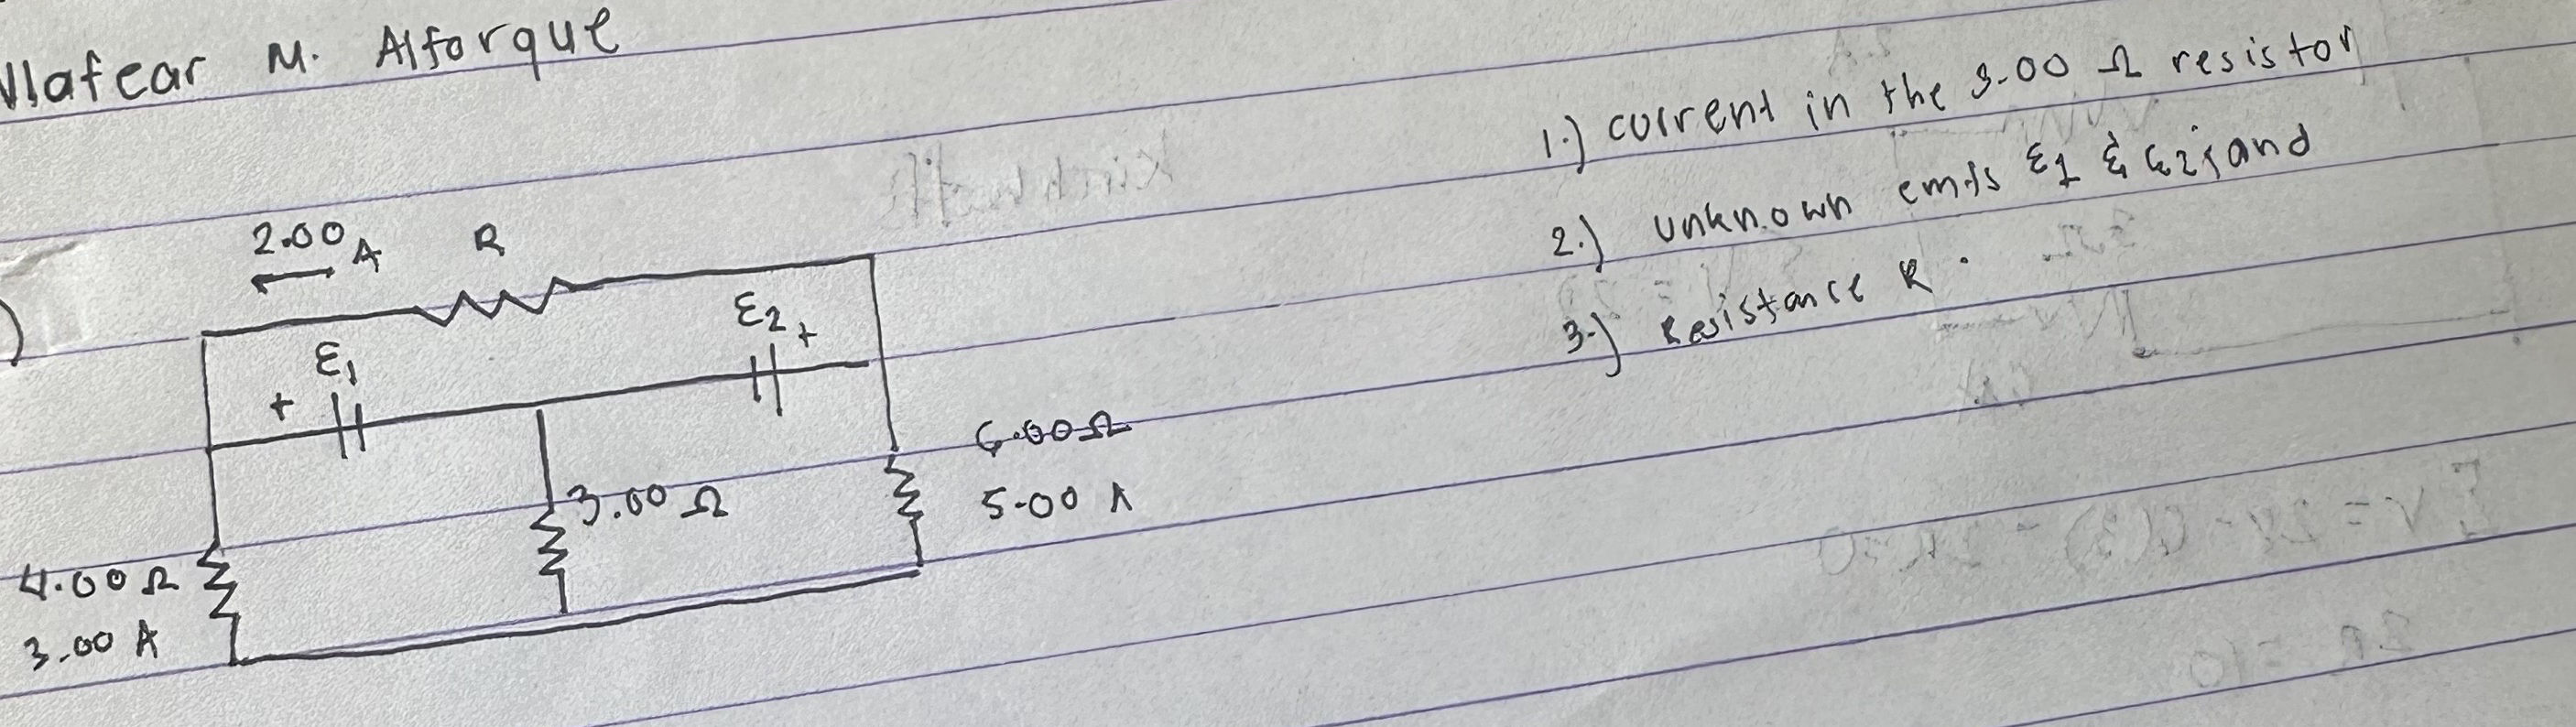 M. Alforque
1.) current in the 3.00 Ω resistor
2.) unknown emfs ε1 & ε2; and
3.) Resistance R.
2.00 A
R
ε1
+
ε2
+
3.00 Ω
6.00 Ω
5.00 A
4.00 Ω
3.00 A